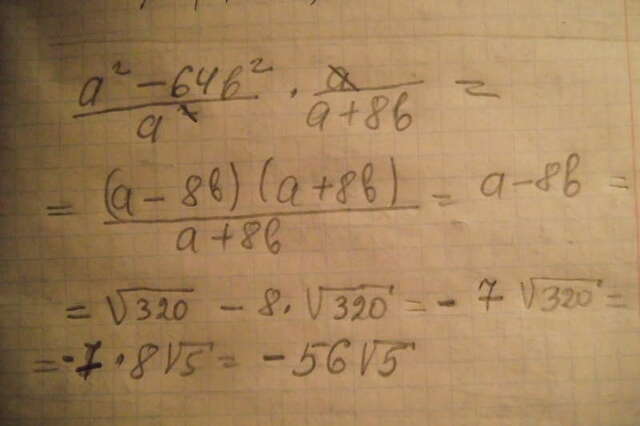 a² - 64b² / a² · a / a + 8b =
= (a - 8b) (a + 8b) / a + 8b = a - 8b =
= √320 - 8 · √320 = - 7 √320 =
= -7 · 8√5 = - 56√5